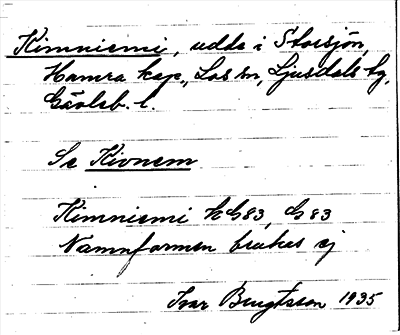 Kimniemi, udde i Storsjön,
Hamra kap., Los sn, Ljusdals tg,
Gävleb. l.
Se Kivnem
Kimniemi KG83, G83
Namnformen brukas ej
Ivar Bengtsson 1935